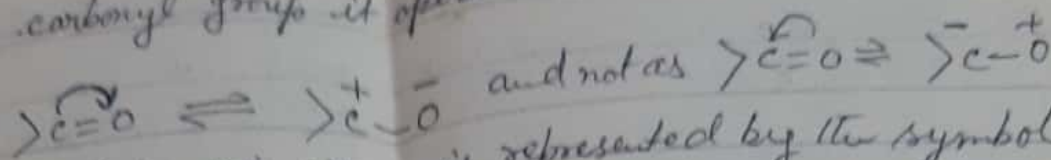 carbonyl group it
>C=O ⇌ >C⁺-O⁻ and not as >C=O ⇌ >C⁻-O⁺
represented by the symbol